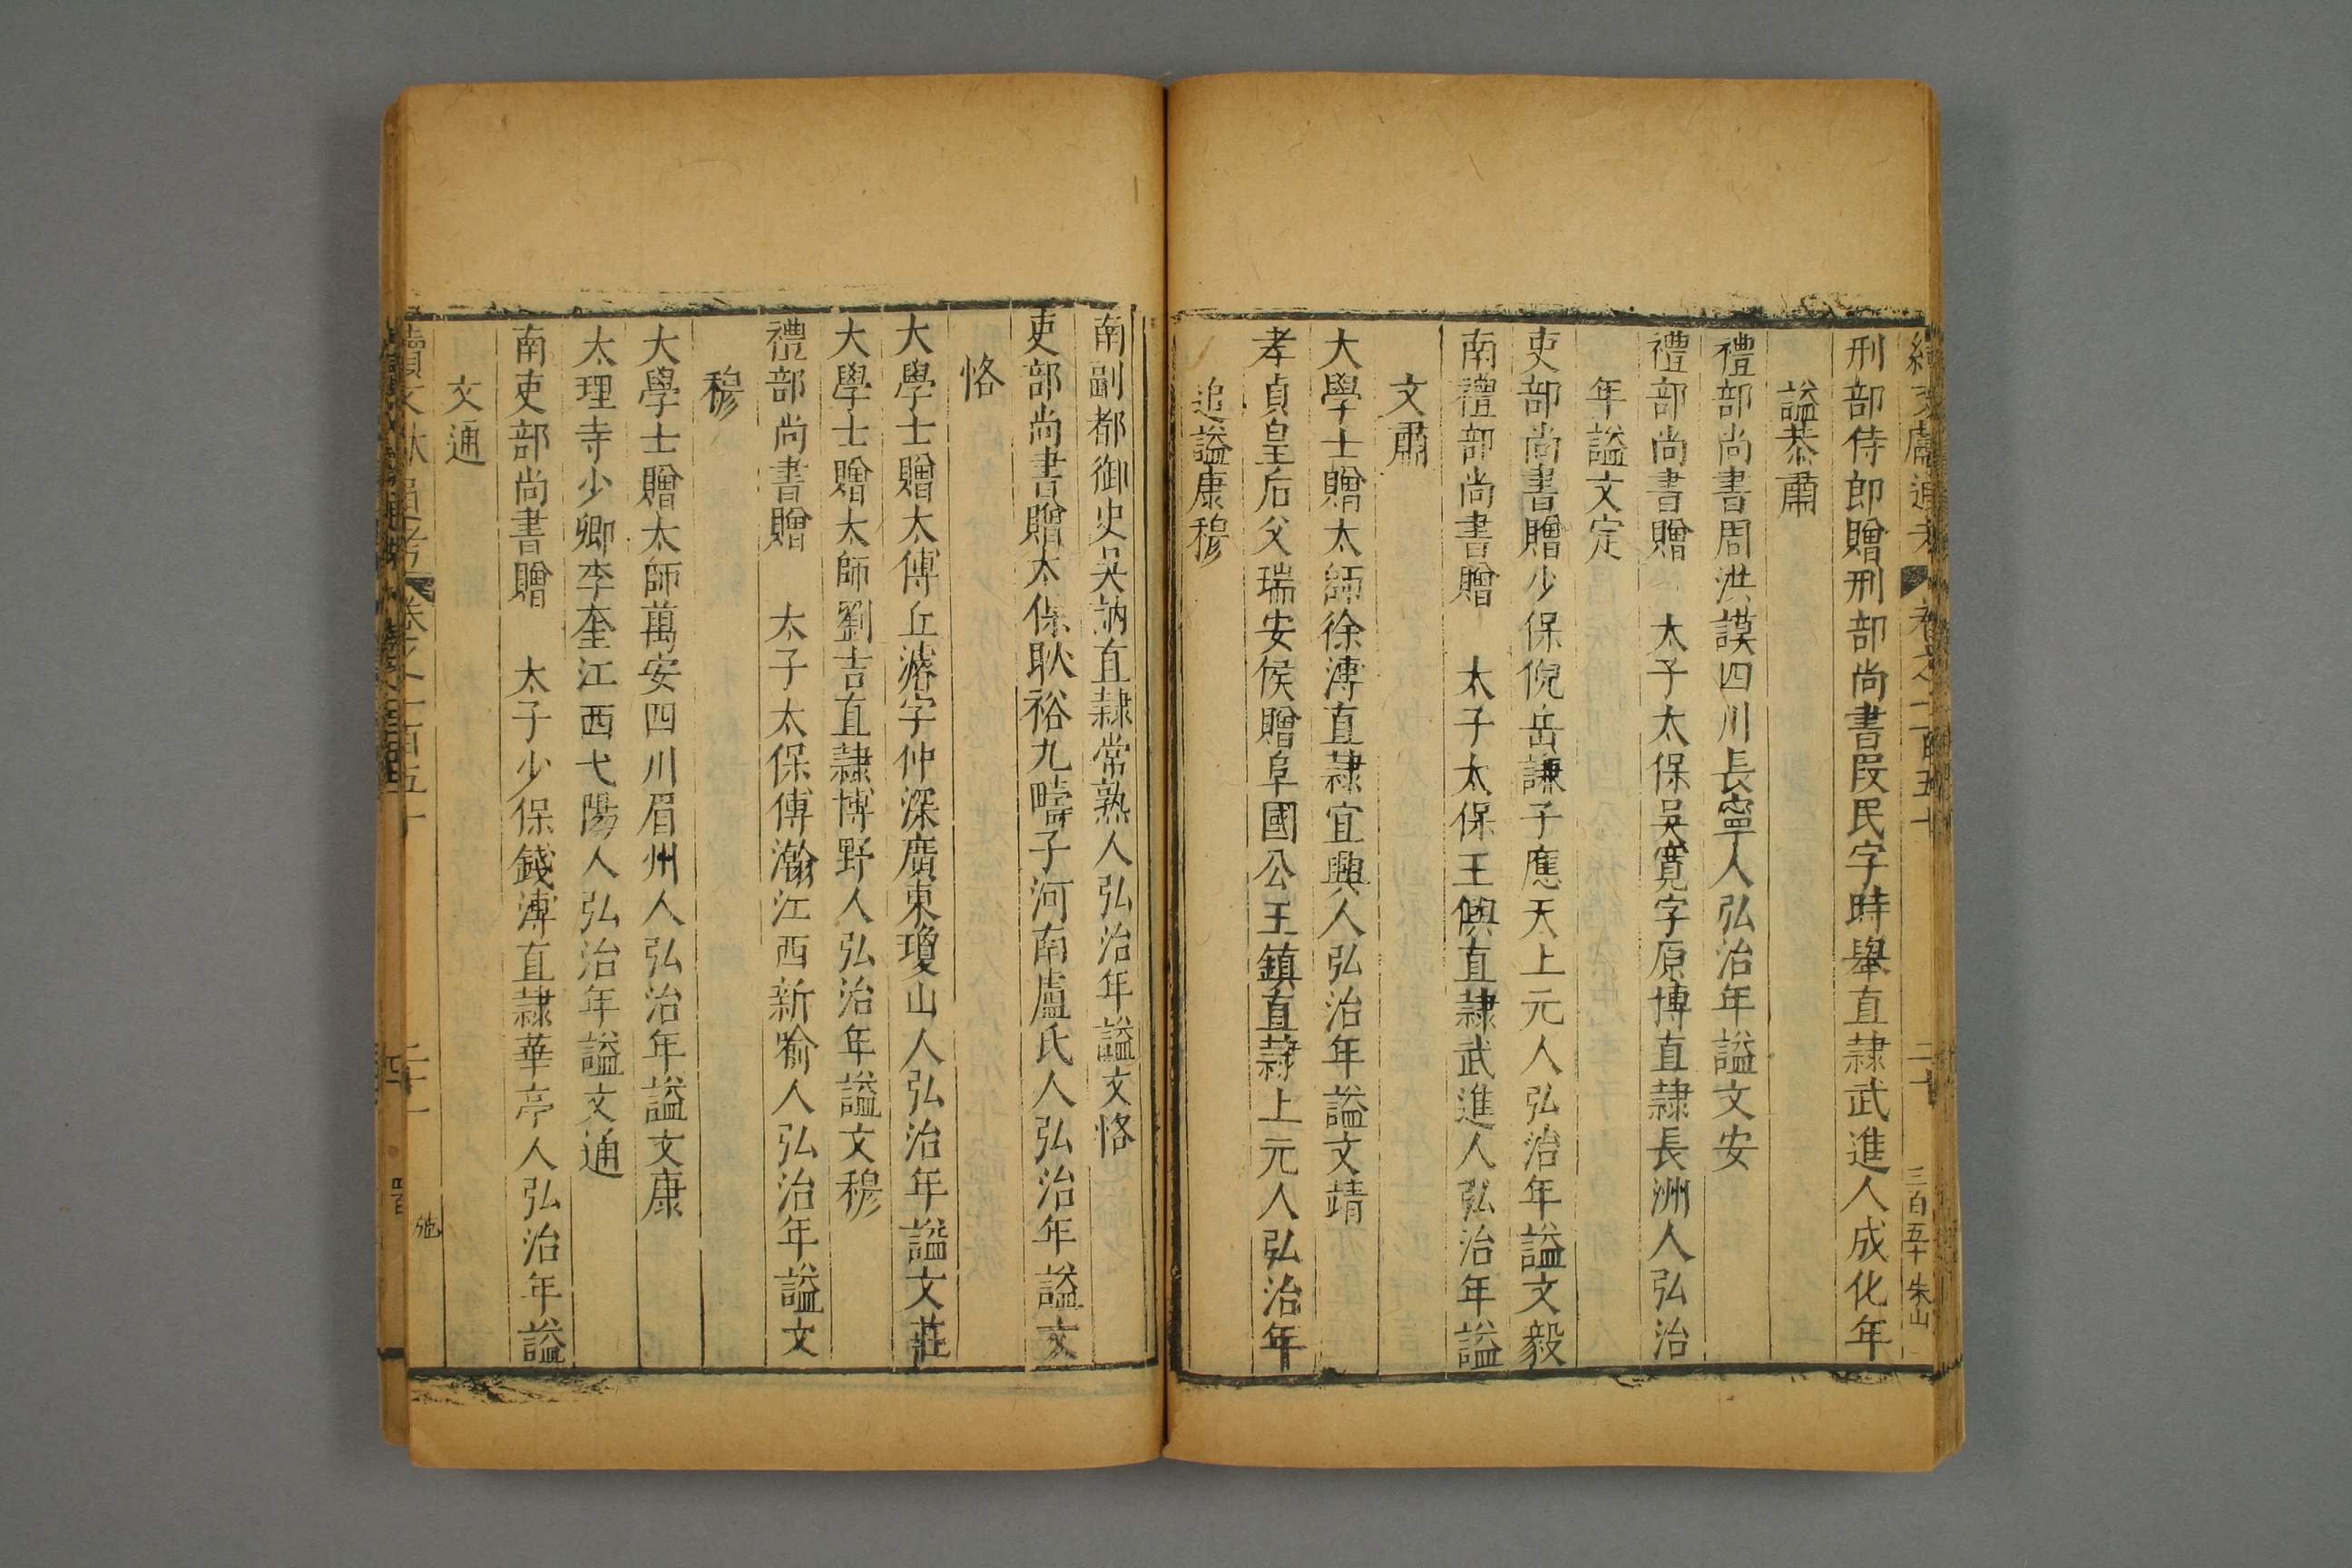 刑部侍郎贈刑部尚書段民字時舉直隷武進人成化年
謚恭肅
禮部尚書周洪謨四川長寧人弘治年謚文安
禮部尚書贈　太子太保吳寛字原博直隷長洲人弘治
年謚文定
吏部尚書贈少保倪岳謙子應天上元人弘治年謚文毅
南禮部尚書贈　太子太保王㒜直隷武進人弘治年謚
文肅
大學士贈太師徐溥直隷宜興人弘治年謚文靖
孝貞皇后父瑞安侯贈阜國公王鎮直隷上元人弘治年
追謚康穆
南副都御史吳訥直隷常熟人弘治年謚文恪
吏部尚書贈太保耿裕九疇子河南盧氏人弘治年謚文
恪
大學士贈太傅丘濬字仲深廣東瓊山人弘治年謚文莊
大學士贈太師劉吉直隷博野人弘治年謚文穆
禮部尚書贈　太子太保傅瀚江西新喻人弘治年謚文
穆
大學士贈太師萬安四川眉州人弘治年謚文康
太理寺少卿李奎江西弋陽人弘治年謚文通
南吏部尚書贈　太子少保錢溥直隷華亭人弘治年謚
文通